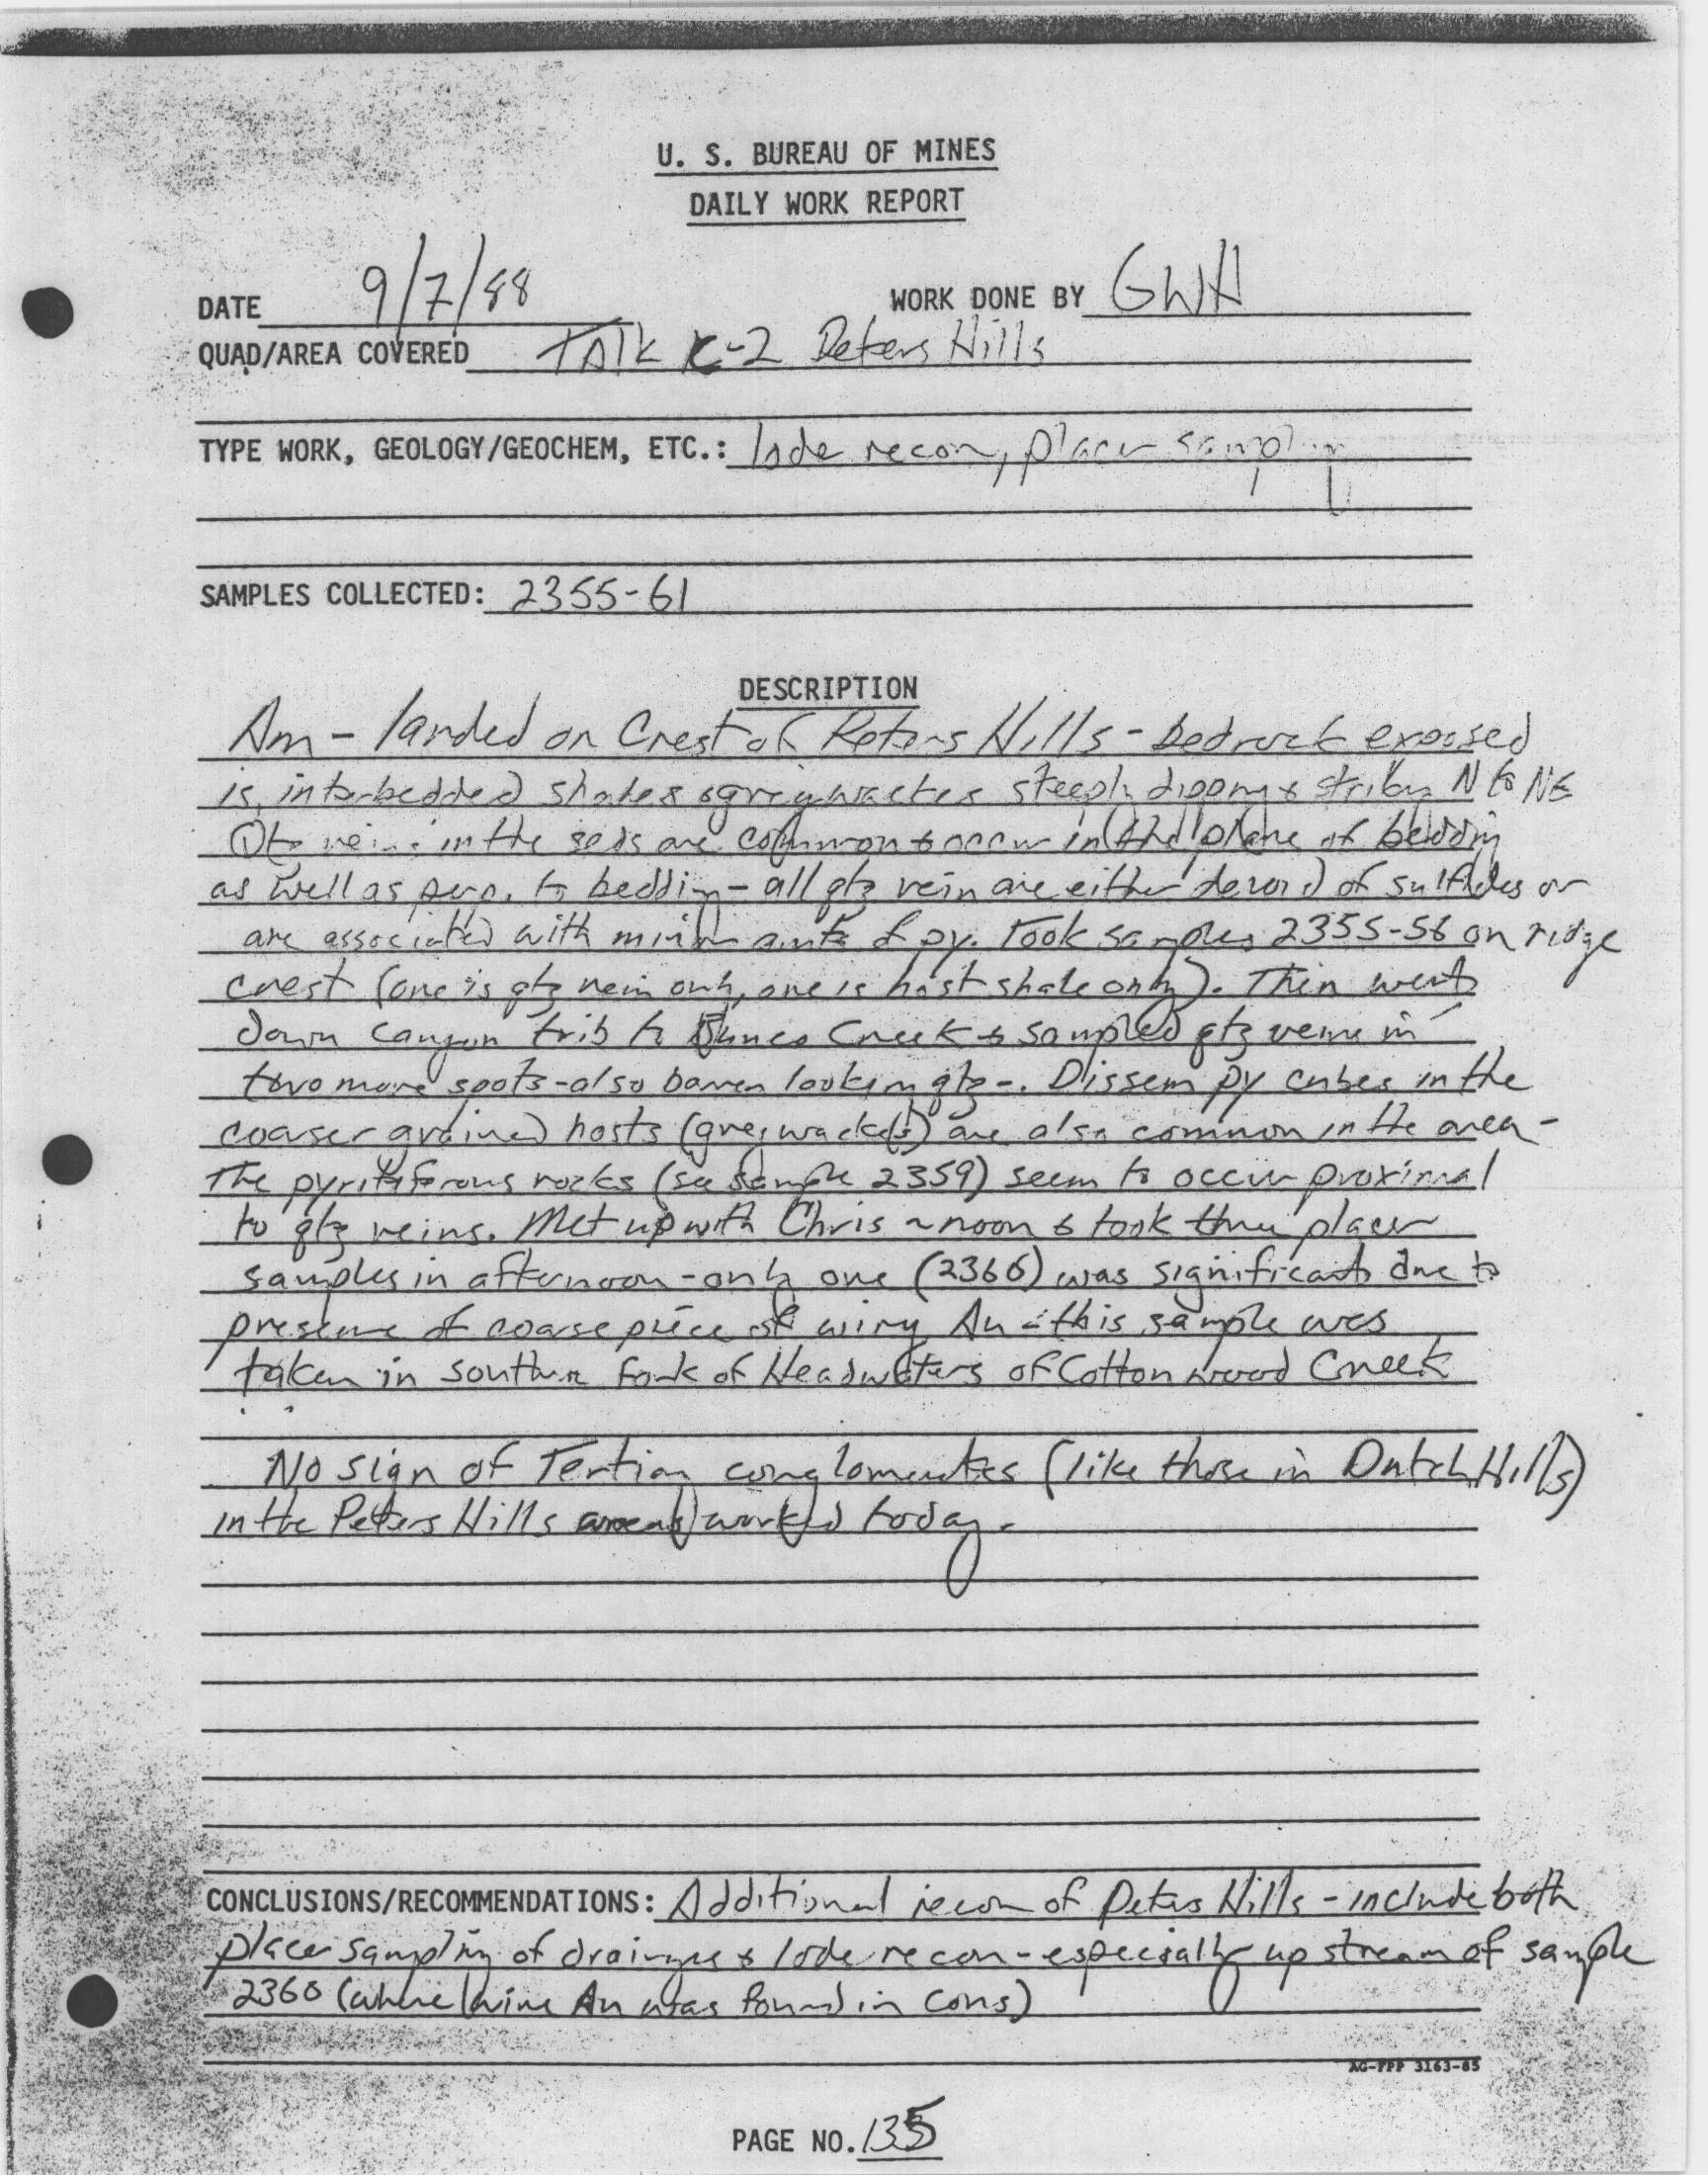 U. S. BUREAU OF MINES
DAILY WORK REPORT
DATE 9/7/88 WORK DONE BY GWH
QUAD/AREA COVERED TALK C-2 Peters Hills
TYPE WORK, GEOLOGY/GEOCHEM, ETC.: lode recon, placer sampling
SAMPLES COLLECTED: 2355-61
DESCRIPTION
Am - landed on Crest of Peters Hills - bedrock exposed
is interbedded shales & greywackes steeply dipping & striking N to NE
Qtz veins in the seds are common & occur in the plane of bedding
as well as perp. to bedding - all qtz vein are either devoid of sulfides or
are associated with minor amts of py. Took samples 2355-56 on ridge
crest (one is qtz vein only, one is host shale only). Then went
down canyon trib to Creek & sampled qtz veins in
two more spots - also barren looking qtz -. Dissem py cubes in the
coarser grained hosts (greywackes) are also common in the area -
The pyritiferous rocks (see sample 2359) seem to occur proximal
to qtz veins. Met up with Chris ~ noon & took three placer
samples in afternoon - only one (2360) was significant due to
presence of coarse piece of wiry Au - this sample was
taken in southern fork of Headwaters of Cottonwood Creek
No sign of Tertiary conglomerates (like those in Dutch Hills)
in the Peters Hills areas worked today.
CONCLUSIONS/RECOMMENDATIONS: Additional recon of Peters Hills - include both
placer sampling of drainages & lode recon - especially up stream of sample
2360 (where wire Au was found in cons)
AG-FPP 3163-85
PAGE NO. 135